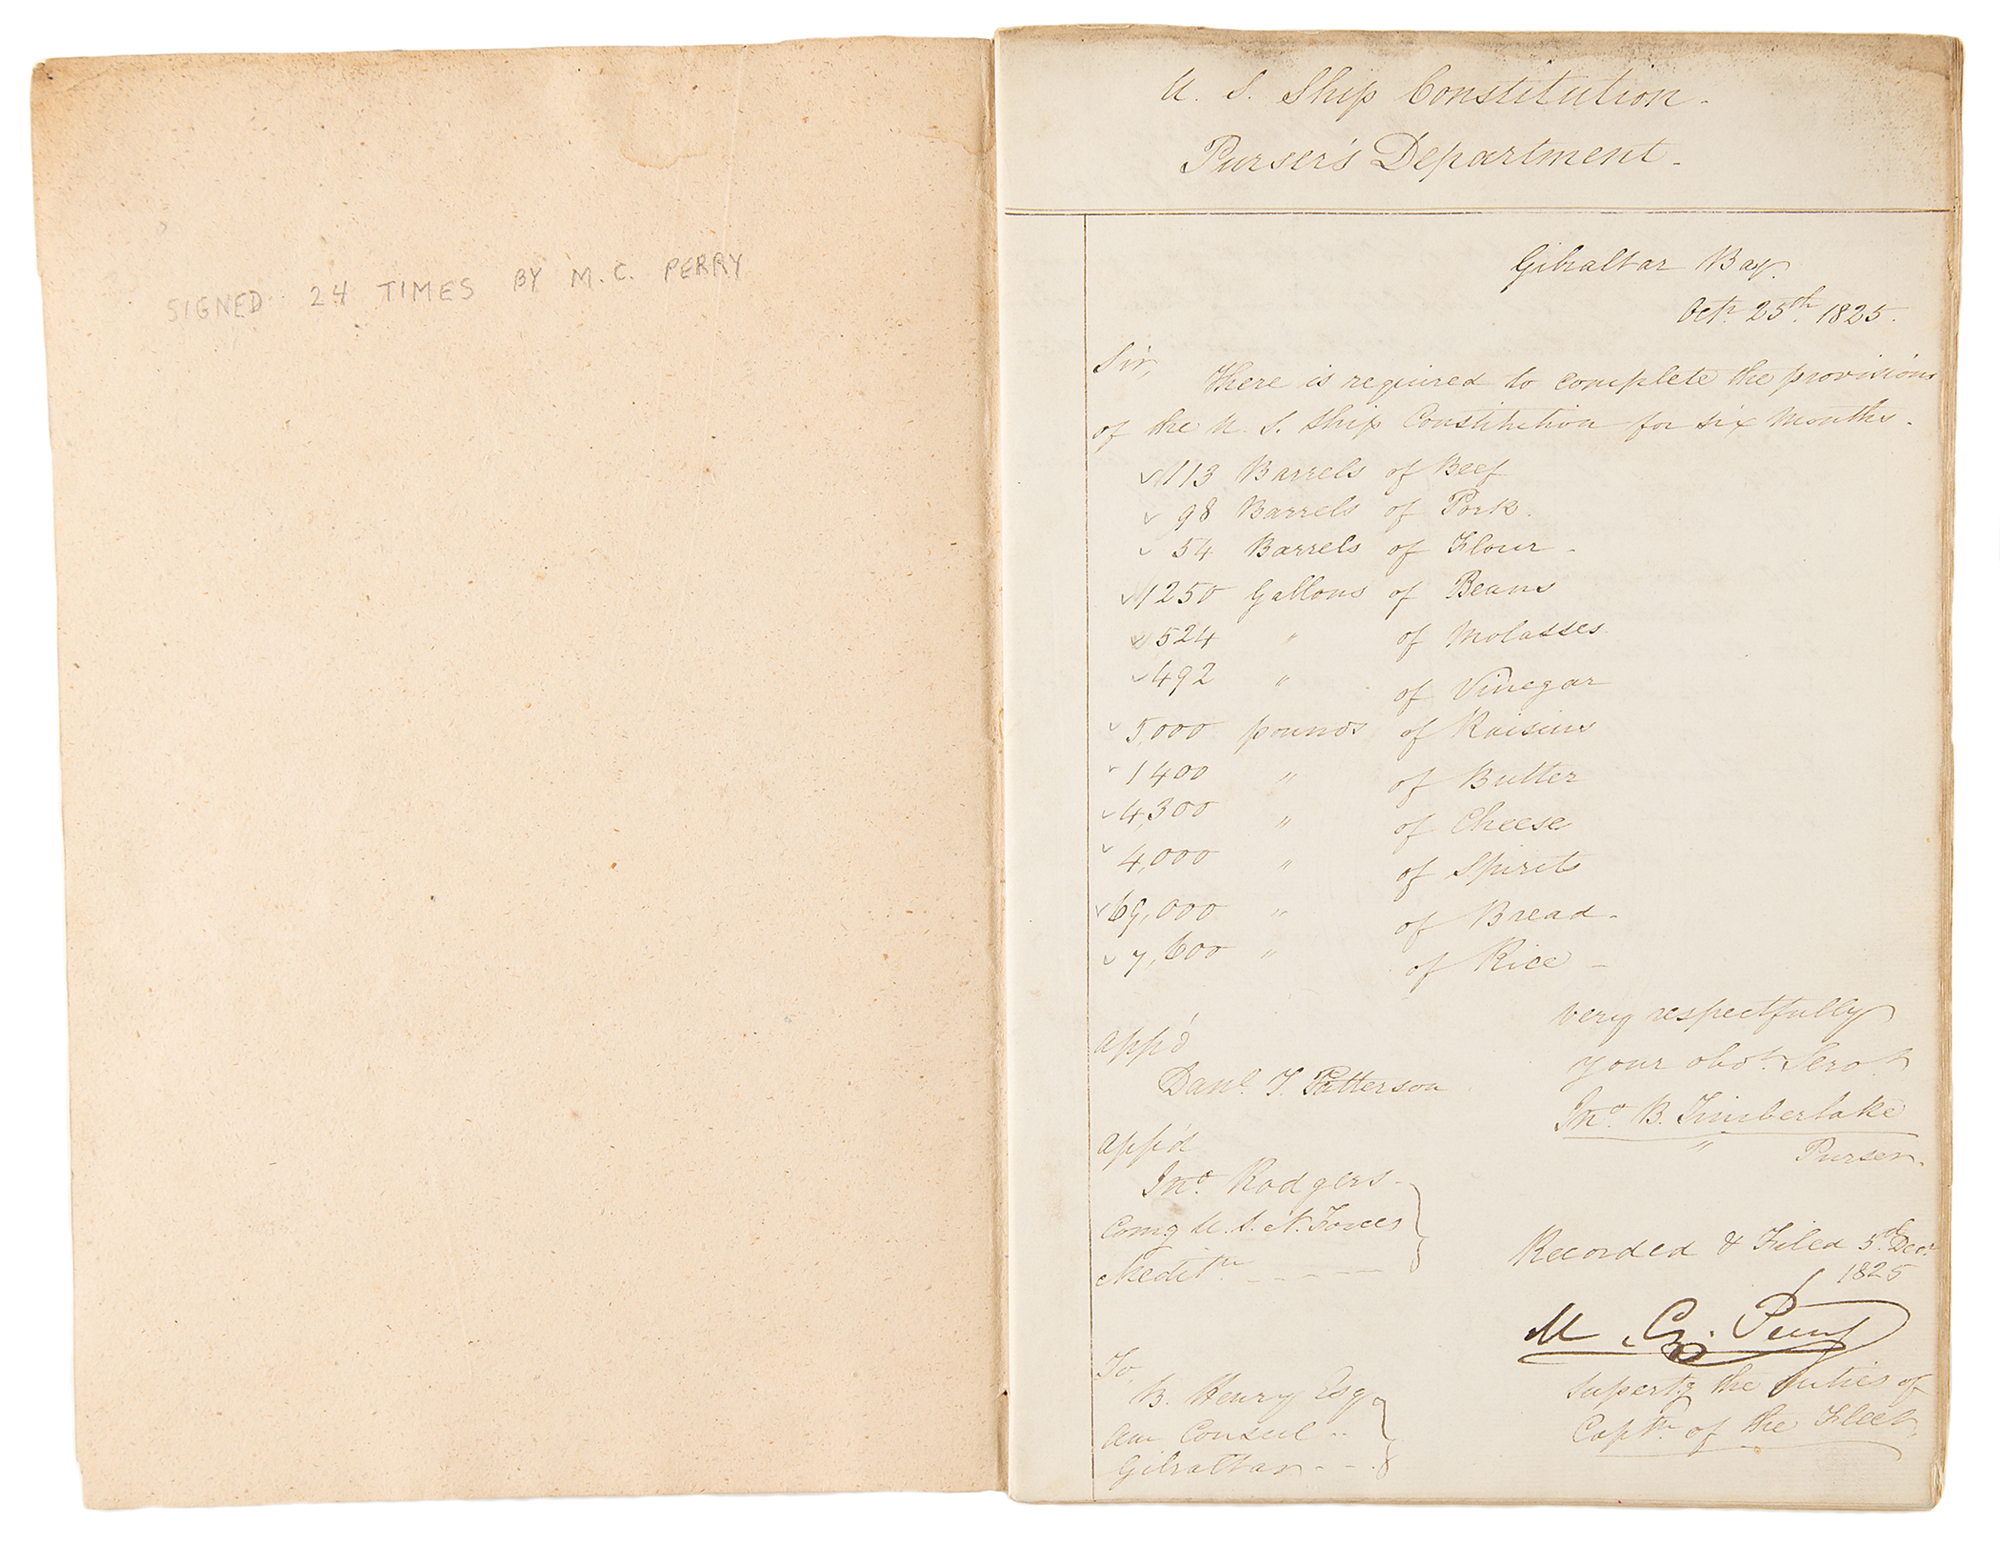 SIGNED 24 TIMES BY M.C. PERRY
U. S. Ship Constitution.
Purser's Department.
Gibraltar Bay
Octr 25th 1825.
Sir,
There is required to complete the provisions
of the U. S. Ship Constitution for six Months.
113 Barrels of Beef
98 Barrels of Pork.
54 Barrels of Flour -
1250 Gallons of Beans
524 " of Molasses
492 " of Vinegar
5,000 pounds of Raisins
1400 " of Butter
4,300 " of Cheese
4,000 " of Spirits
69,000 " of Bread -
7,600 " of Rice -
very respectfully
your obdt Servt
Jno. B. Timberlake
" Purser.
app'd
Danl. T. Patterson
app'd
Jno. Rodgers
Comg U. S. N. Forces
Mediten
Recorded & Filed 5th Decr
1825
M. C. Perry
Superty the duties of
Captn of the Fleet
To
B. Henry Esq
Am Consul
Gibraltar